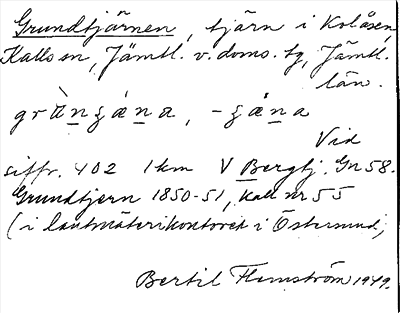 Grundtjärnen, tjärn i Kolåsen
Kalls sn, Jämtl. v. doms. tg, Jämtl.
län.
Vid
siffr. 402 1 km V Bergtj. Gn 58.
Grundtjern 1850-51, Kall nr 55
(i lantmäterikontoret i Östersund,
Bertil Flemström 1979.